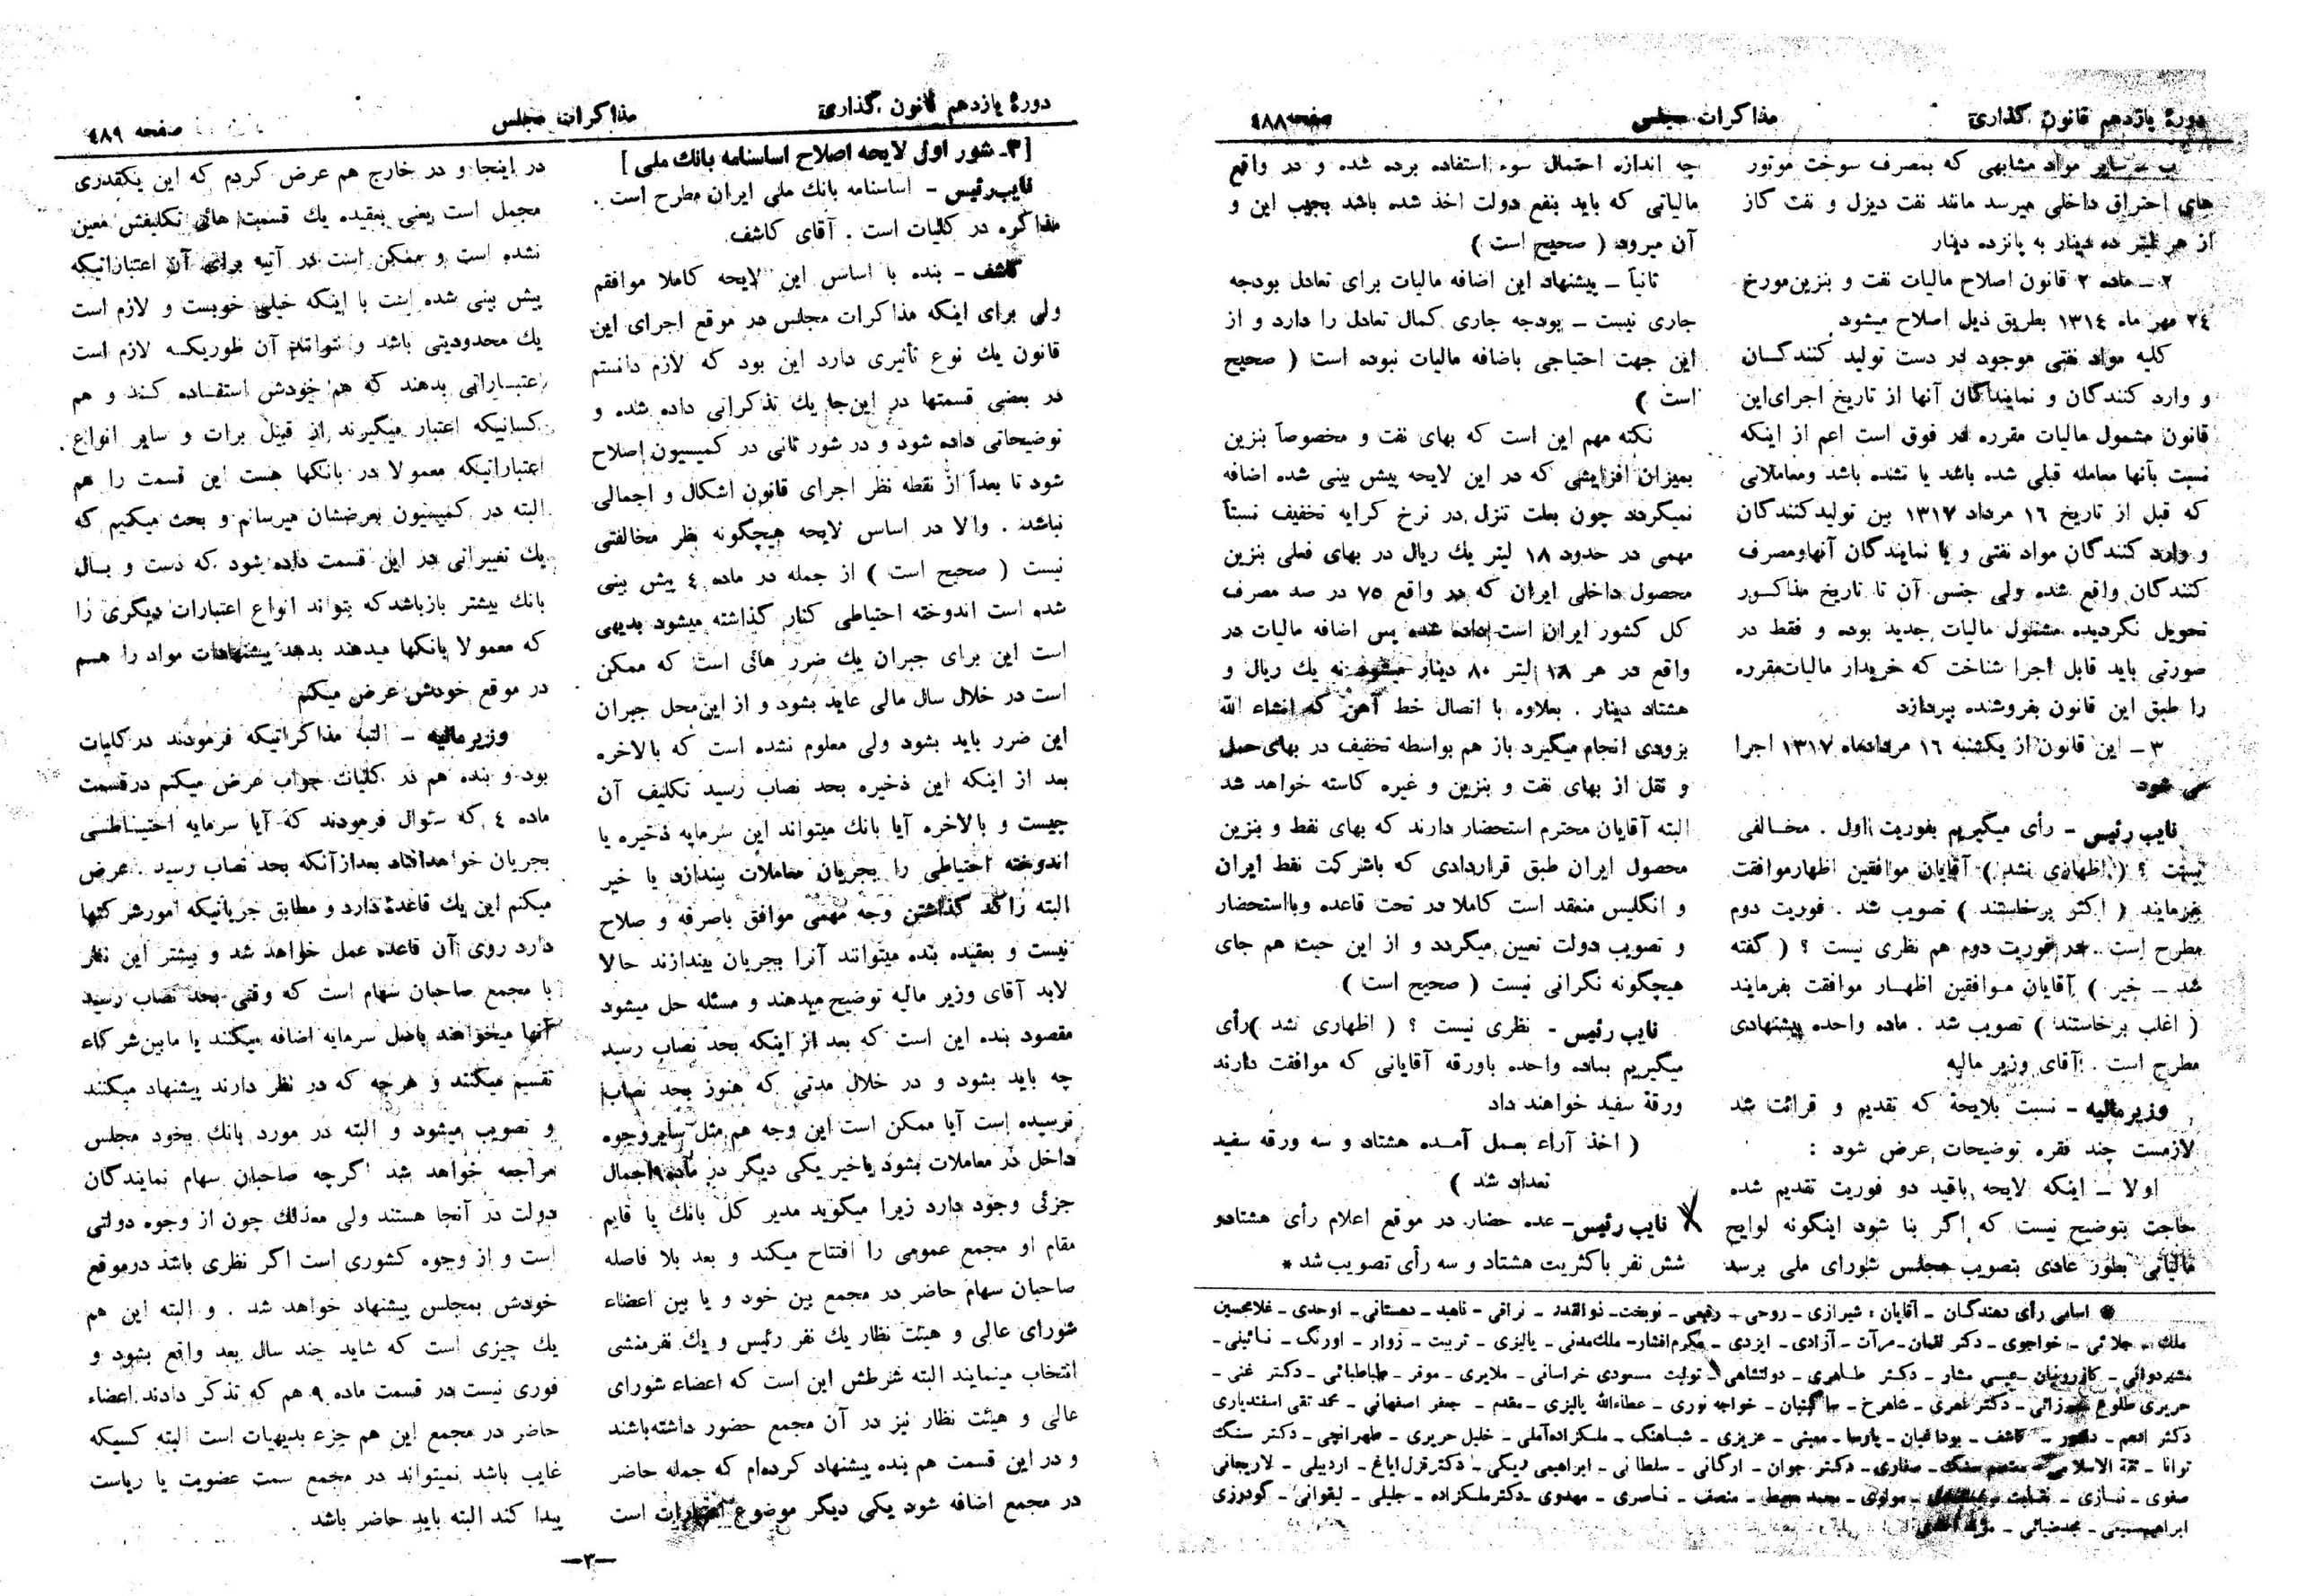 دورهٔ یازدهم قانون گذاری
مذاکرات مجلس
صفحه ۴۸۸
ب ـ سایر مواد مشابهی که بمصرف سوخت موتور
های احتراق داخلی میرسد مانند نفت دیزل و نفت گاز
از هر لیتر ده دینار به پانزده دینار
۲ ـ ماده ۲ قانون اصلاح مالیات نفت و بنزین مورخ
۲۴ مهر ماه ۱۳۱۴ بطریق ذیل اصلاح میشود
کلیه مواد نفتی موجود در دست تولید کنندگان
و وارد کنندگان و نمایندگان آنها از تاریخ اجرای این
قانون مشمول مالیات مقرره در فوق است اعم از اینکه
نسبت بآنها معامله قبلی شده باشد یا نشده باشد ومعاملاتی
که قبل از تاریخ ۱۶ مرداد ۱۳۱۷ بین تولیدکنندگان
و وارد کنندگان مواد نفتی و یا نمایندگان آنهاومصرف
کنندگان واقع شده ولی جنس آن تا تاریخ مذکور
تحویل نگردیده مشمول مالیات جدید بوده و فقط در
صورتی باید قابل اجرا شناخت که خریدار مالیات‌مقرره
را طبق این قانون بفروشنده بپردازد
۳ ـ این قانون از یکشنبه ۱۶ مردادماه ۱۳۱۷ اجرا
می شود
نایب رئیس ـ رأی میگیریم بفوریت اول . مخالفی
نیست ؟ ( اظهاری نشد ) آقایان موافقین اظهارموافقت
بفرمایند ( اکثر برخاستند ) تصویب شد . فوریت دوم
مطرح است . در فوریت دوم هم نظری نیست ؟ ( گفته
شد ـ خیر ) آقایان موافقین اظهار موافقت بفرمایند
( اغلب برخاستند ) تصویب شد . ماده واحده پیشنهادی
مطرح است . آقای وزیر مالیه
وزیر مالیه ـ نسبت بلایحهٔ که تقدیم و قرائت شد
لازمست چند فقره توضیحات عرض شود :
اولا ـ اینکه لایحه باقید دو فوریت تقدیم شده
حاجت بتوضیح نیست که اگر بنا شود اینگونه لوایح
مالیاتی بطور عادی بتصویب مجلس شورای ملی برسد
چه اندازه احتمال سوء استفاده برده شده و در واقع
مالیاتی که باید بنفع دولت اخذ شده باشد بجیب این و
آن میرود ( صحیح است )
ثانیاً ـ پیشنهاد این اضافه مالیات برای تعادل بودجه
جاری نیست ـ بودجه جاری کمال تعادل را دارد و از
این جهت احتیاجی باضافه مالیات نبوده است ( صحیح
است )
نکته مهم این است که بهای نفت و مخصوصاً بنزین
بمیزان افزایشی که در این لایحه پیش بینی شده اضافه
نمیگردد چون بعلت تنزل در نرخ کرایه تخفیف نسبتاً
مهمی در حدود ۱۸ لیتر یك ریال در بهای فعلی بنزین
محصول داخلی ایران که در واقع ۷۵ در صد مصرف
کل کشور ایران است داده شده پس اضافه مالیات در
واقع در هر ۱۸ لیتر ۸۰ دینار میشود نه یك ریال و
هشتاد دینار . بعلاوه با اتصال خط آهن که انشاء الله
بزودی انجام میگیرد باز هم بواسطه تخفیف در بهای حمل
و نقل از بهای نفت و بنزین و غیره کاسته خواهد شد
البته آقایان محترم استحضار دارند که بهای نفط و بنزین
محصول ایران طبق قراردادی که باشرکت نفط ایران
و انگلیس منعقد است کاملا در تحت قاعده وبااستحضار
و تصویب دولت تعیین میگردد و از این حیث هم جای
هیچگونه نگرانی نیست ( صحیح است )
نایب رئیس ـ نظری نیست ؟ ( اظهاری نشد )رأی
میگیریم بماده واحده باورقه آقایانی که موافقت دارند
ورقهٔ سفید خواهند داد
( اخذ آراء بعمل آمده هشتاد و سه ورقه سفید
تعداد شد )
نایب رئیس ـ عده حضار در موقع اعلام رأی هشتادو
شش نفر باکثریت هشتاد و سه رأی تصویب شد *
* اسامی رأی دهندگان ـ آقایان : شیرازی ـ روحی ـ رفیعی ـ نوبخت ـ ذوالقدر ـ نراقی ـ ناهید ـ دهستانی ـ اوحدی ـ غلامحسین
ملك ـ جلائی ـ خواجوی ـ دکتر لقمان ـ مرآت ـ آزادی ـ ایزدی ـ مکرم‌افشار ـ ملك‌مدنی ـ پالیزی ـ تربیت ـ زوار ـ اورنگ ـ نائینی ـ
مشیردوانی ـ کازرونیان ـ عیسی مشار ـ دکتر طاهری ـ دولتشاهی ـ تولیت مسعودی خراسانی ـ ملایری ـ موقر ـ طباطبائی ـ دکتر غنی ـ
حریری طلوع ـ دکتر اهری ـ شاهرخ ـ ساگینیان ـ خواجه نوری ـ عطاءالله پالیزی ـ مقدم ـ جعفر اصفهانی ـ محمد تقی اسفندیاری
دکتر ادهم ـ دشتی ـ کاشف ـ بوداغیان ـ پارسا ـ معینی ـ عزیزی ـ شباهنگ ـ ملکزاده‌آملی ـ خلیل حریری ـ طهرانچی ـ دکتر سنگ
توانا ـ ثقة الاسلامی ـ معتصم سنگ ـ صفاری ـ دکتر جوان ـ ارگانی ـ سلطانی ـ ابراهیمی ریگی ـ دکتر قزل‌ایاغ ـ اردبیلی ـ لاریجانی
صفوی ـ نمازی ـ ـ مولوی ـ محمد محیط ـ منصف ـ ناصری ـ مهدوی ـ دکترملکزاده ـ جلیلی ـ لیقوانی ـ گودرزی
ابراهیم‌سمیعی ـ مجدضیائی ـ
دورهٔ یازدهم قانون گذاری
مذاکرات مجلس
صفحه ۴۸۹
[ ۳ـ شور اول لایحه اصلاح اساسنامه بانك ملی ]
نایب‌رئیس ـ اساسنامه بانك ملی ایران مطرح است .
مذاکره در کلیات است . آقای کاشف.
کاشف ـ بنده با اساس این لایحه کاملا موافقم
ولی برای اینکه مذاکرات مجلس در موقع اجرای این
قانون یك نوع تأثیری دارد این بود که لازم دانستم
در بعضی قسمتها در این‌جا یك تذکراتی داده شده و
توضیحاتی داده شود و در شور ثانی در کمیسیون اصلاح
شود تا بعداً از نقطه نظر اجرای قانون اشکال و اجمالی
نباشد . والا در اساس لایحه هیچگونه نظر مخالفتی
نیست ( صحیح است ) از جمله در ماده ۴ پیش بینی
شده است اندوخته احتیاطی کنار گذاشته میشود بدیهی
است این برای جبران یك ضرر هائی است که ممکن
است در خلال سال مالی عاید بشود و از این‌محل جبران
این ضرر باید بشود ولی معلوم نشده است که بالاخره
بعد از اینکه این ذخیره بحد نصاب رسید تکلیف آن
چیست و بالاخره آیا بانك میتواند این سرمایه ذخیره یا
اندوخته احتیاطی را بجریان معاملات بیندازد یا خیر
البته راکد گذاشتن وجه مهمی موافق باصرفه و صلاح
نیست و بعقیده بنده میتوانند آنرا بجریان بیندازند حالا
لابد آقای وزیر مالیه توضیح میدهند و مسئله حل میشود
مقصود بنده این است که بعد از اینکه بحد نصاب رسید
چه باید بشود و در خلال مدتی که هنوز بحد نصاب
نرسیده است آیا ممکن است این وجه هم مثل سایروجوه
داخل در معاملات بشود یاخیر یکی دیگر در ماده۹ اجمال
جزئی وجود دارد زیرا میگوید مدیر کل بانك یا قایم
مقام او مجمع عمومی را افتتاح میکند و بعد بلا فاصله
صاحبان سهام حاضر در مجمع بین خود و یا بین اعضاء
شورای عالی و هیئت نظار یك نفر رئیس و یك نفرمنشی
انتخاب مینمایند البته شرطش این است که اعضاء شورای
عالی و هیئت نظار نیز در آن مجمع حضور داشته‌باشند
و در این قسمت هم بنده پیشنهاد کرده‌ام که جمله حاضر
در مجمع اضافه شود یکی دیگر موضوع اعتبارات است
در اینجا و در خارج هم عرض کردم که این یکقدری
مجمل است یعنی بعقیده یك قسمت هائی تکلیفش معین
نشده است و ممکن است در آتیه برای آن اعتباراتیکه
پیش بینی شده است با اینکه خیلی خوبست و لازم است
یك محدودیتی باشد و نتوانند آن طوریکه لازم است
اعتباراتی بدهند که هم خودش استفاده کند و هم
کسانیکه اعتبار میگیرند از قبیل برات و سایر انواع
اعتباراتیکه معمولا در بانکها هست این قسمت را هم
البته در کمیسیون بعرضشان میرسانم و بحث میکنیم که
یك تغییراتی در این قسمت داده شود که دست و بال
بانك بیشتر بازباشدکه بتواند انواع اعتبارات دیگری را
که معمولا بانکها میدهند بدهد پیشنهادات مواد را هم
در موقع خودش عرض میکنم
وزیرمالیه ـ البته مذاکراتیکه فرمودند درکلیات
بود و بنده هم در کلیات جواب عرض میکنم درقسمت
ماده ۴ که سئوال فرمودند که آیا سرمایه احتیاطی
بجریان خواهدافتاد بعدازآنکه بحد نصاب رسید . عرض
میکنم این یك قاعدهٔ دارد و مطابق جریانیکه امورشرکتها
دارد روی آن قاعده عمل خواهد شد و بیشتر این نظر
با مجمع صاحبان سهام است که وقتی بحد نصاب رسید
آنها میخواهند باصل سرمایه اضافه میکنند یا مابین‌شرکاء
تقسیم میکنند و هرچه که در نظر دارند پیشنهاد میکنند
و تصویب میشود و البته در مورد بانك بخود مجلس
مراجعه خواهد شد اگرچه صاحبان سهام نمایندگان
دولت در آنجا هستند ولی معذلك چون از وجوه دولتی
است و از وجوه کشوری است اگر نظری باشد درموقع
خودش بمجلس پیشنهاد خواهد شد . و البته این هم
یك چیزی است که شاید چند سال بعد واقع بشود و
فوری نیست در قسمت ماده ۹ هم که تذکر دادند اعضاء
حاضر در مجمع این هم جزء بدیهیات است البته کسیکه
غایب باشد نمیتواند در مجمع سمت عضویت یا ریاست
پیدا کند البته باید حاضر باشد .
ـ۳ـ